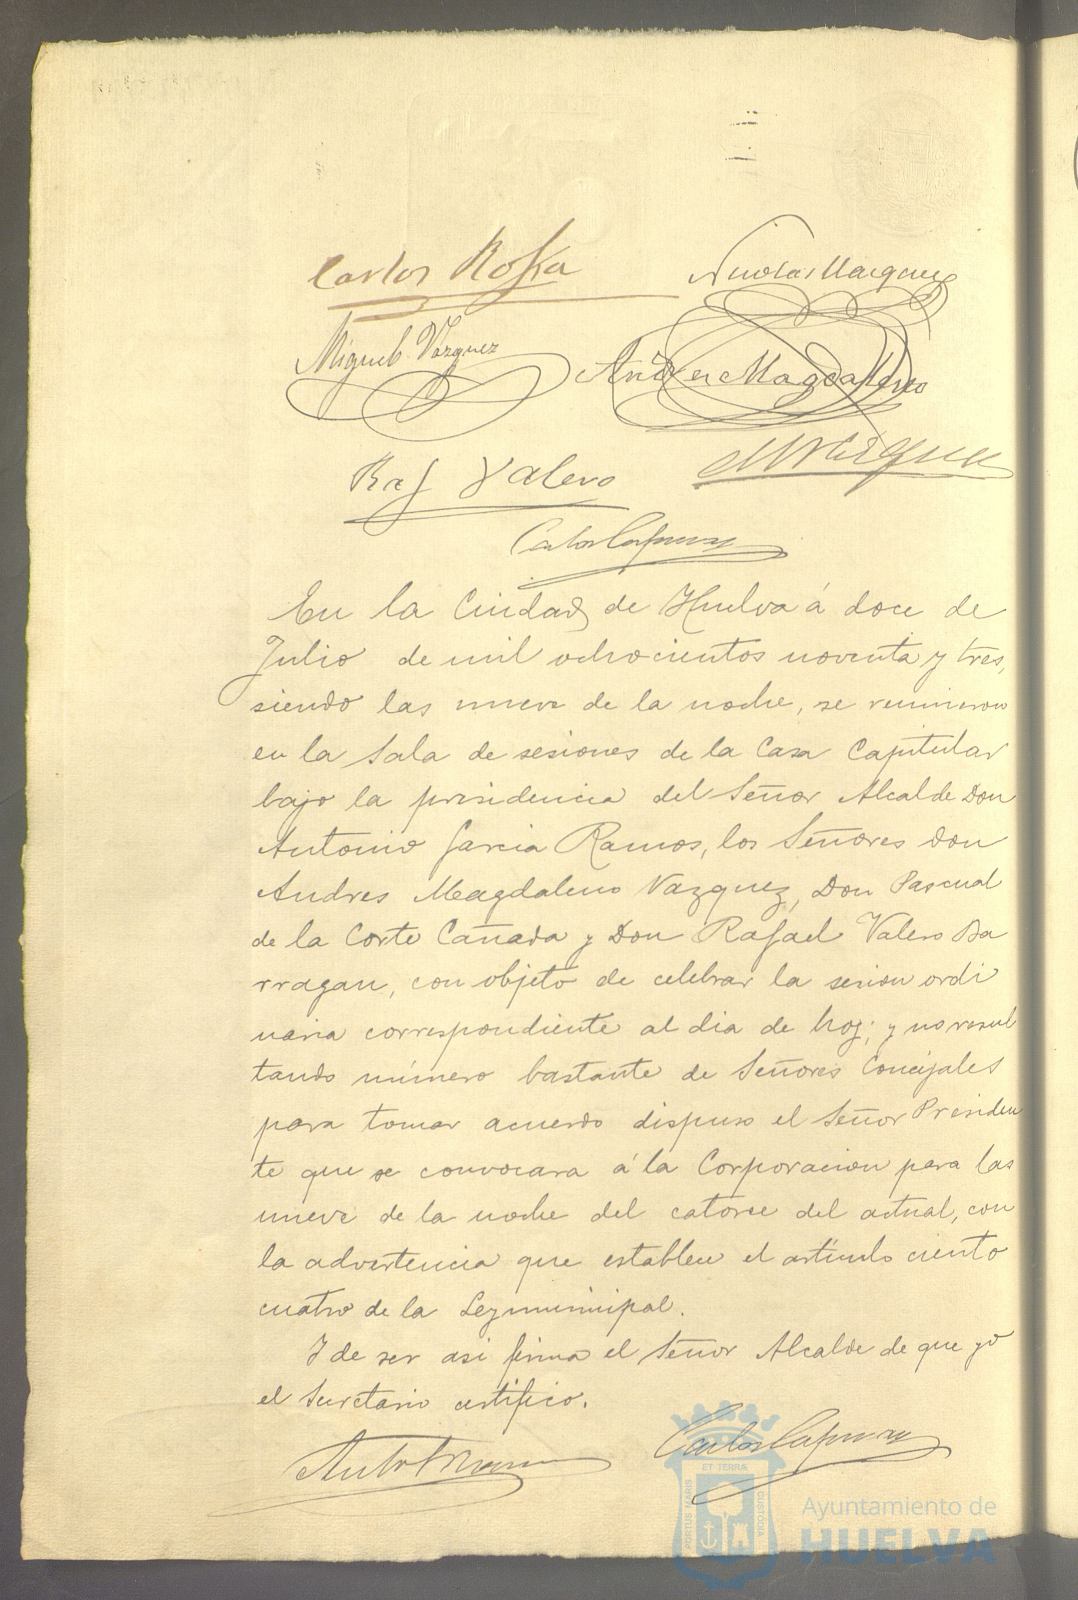 Carlos
Nicolas Vazquez
Miguel Vázquez
Andres Magdaleno
Raf Valero
Carlos
En la Ciudad de Huelva á doce de
Julio de mil ochocientos noventa y tres,
siendo las nueve de la noche, se reunieron
en la Sala de sesiones de la Casa Capitular
bajo la presidencia del Señor Alcalde Don
Antonio Garcia Ramos, los Señores Don
Andres Magdaleno Vazquez, Don Pascual
de la Corte Cañada y Don Rafael Valero Ba
rragan, con objeto de celebrar la sesion ordi
naria correspondiente al dia de hoy; y no resul
tando número bastante de Señores Concejales
para tomar acuerdo dispuso el Señor Presiden
te que se convocara á la Corporacion para las
nueve de la noche del catorce del actual, con
la advertencia que establece el artículo ciento
cuatro de la Ley municipal.
Y de ser asi firma el Señor Alcalde de que yo
el Secretario certifico.
Carlos
ET TERRÆ
PORTUS MARIS
CUSTODIA
Ayuntamiento de
HUELVA